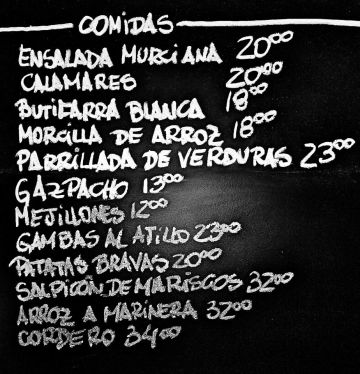 COMIDAS
ENSALADA MURCIANA 20⁰⁰
CALAMARES 20⁰⁰
BUTIFARRA BLANCA 18⁰⁰
MORCILLA DE ARROZ 18⁰⁰
PARRILLADA DE VERDURAS 23⁰⁰
GAZPACHO 13⁰⁰
MEJILLONES 12⁰⁰
GAMBAS AL AJILLO 23⁰⁰
PATATAS BRAVAS 20⁰⁰
SALPICÓN DE MARISCOS 32⁰⁰
ARROZ A MARINERA 32⁰⁰
CORDERO 34⁰⁰